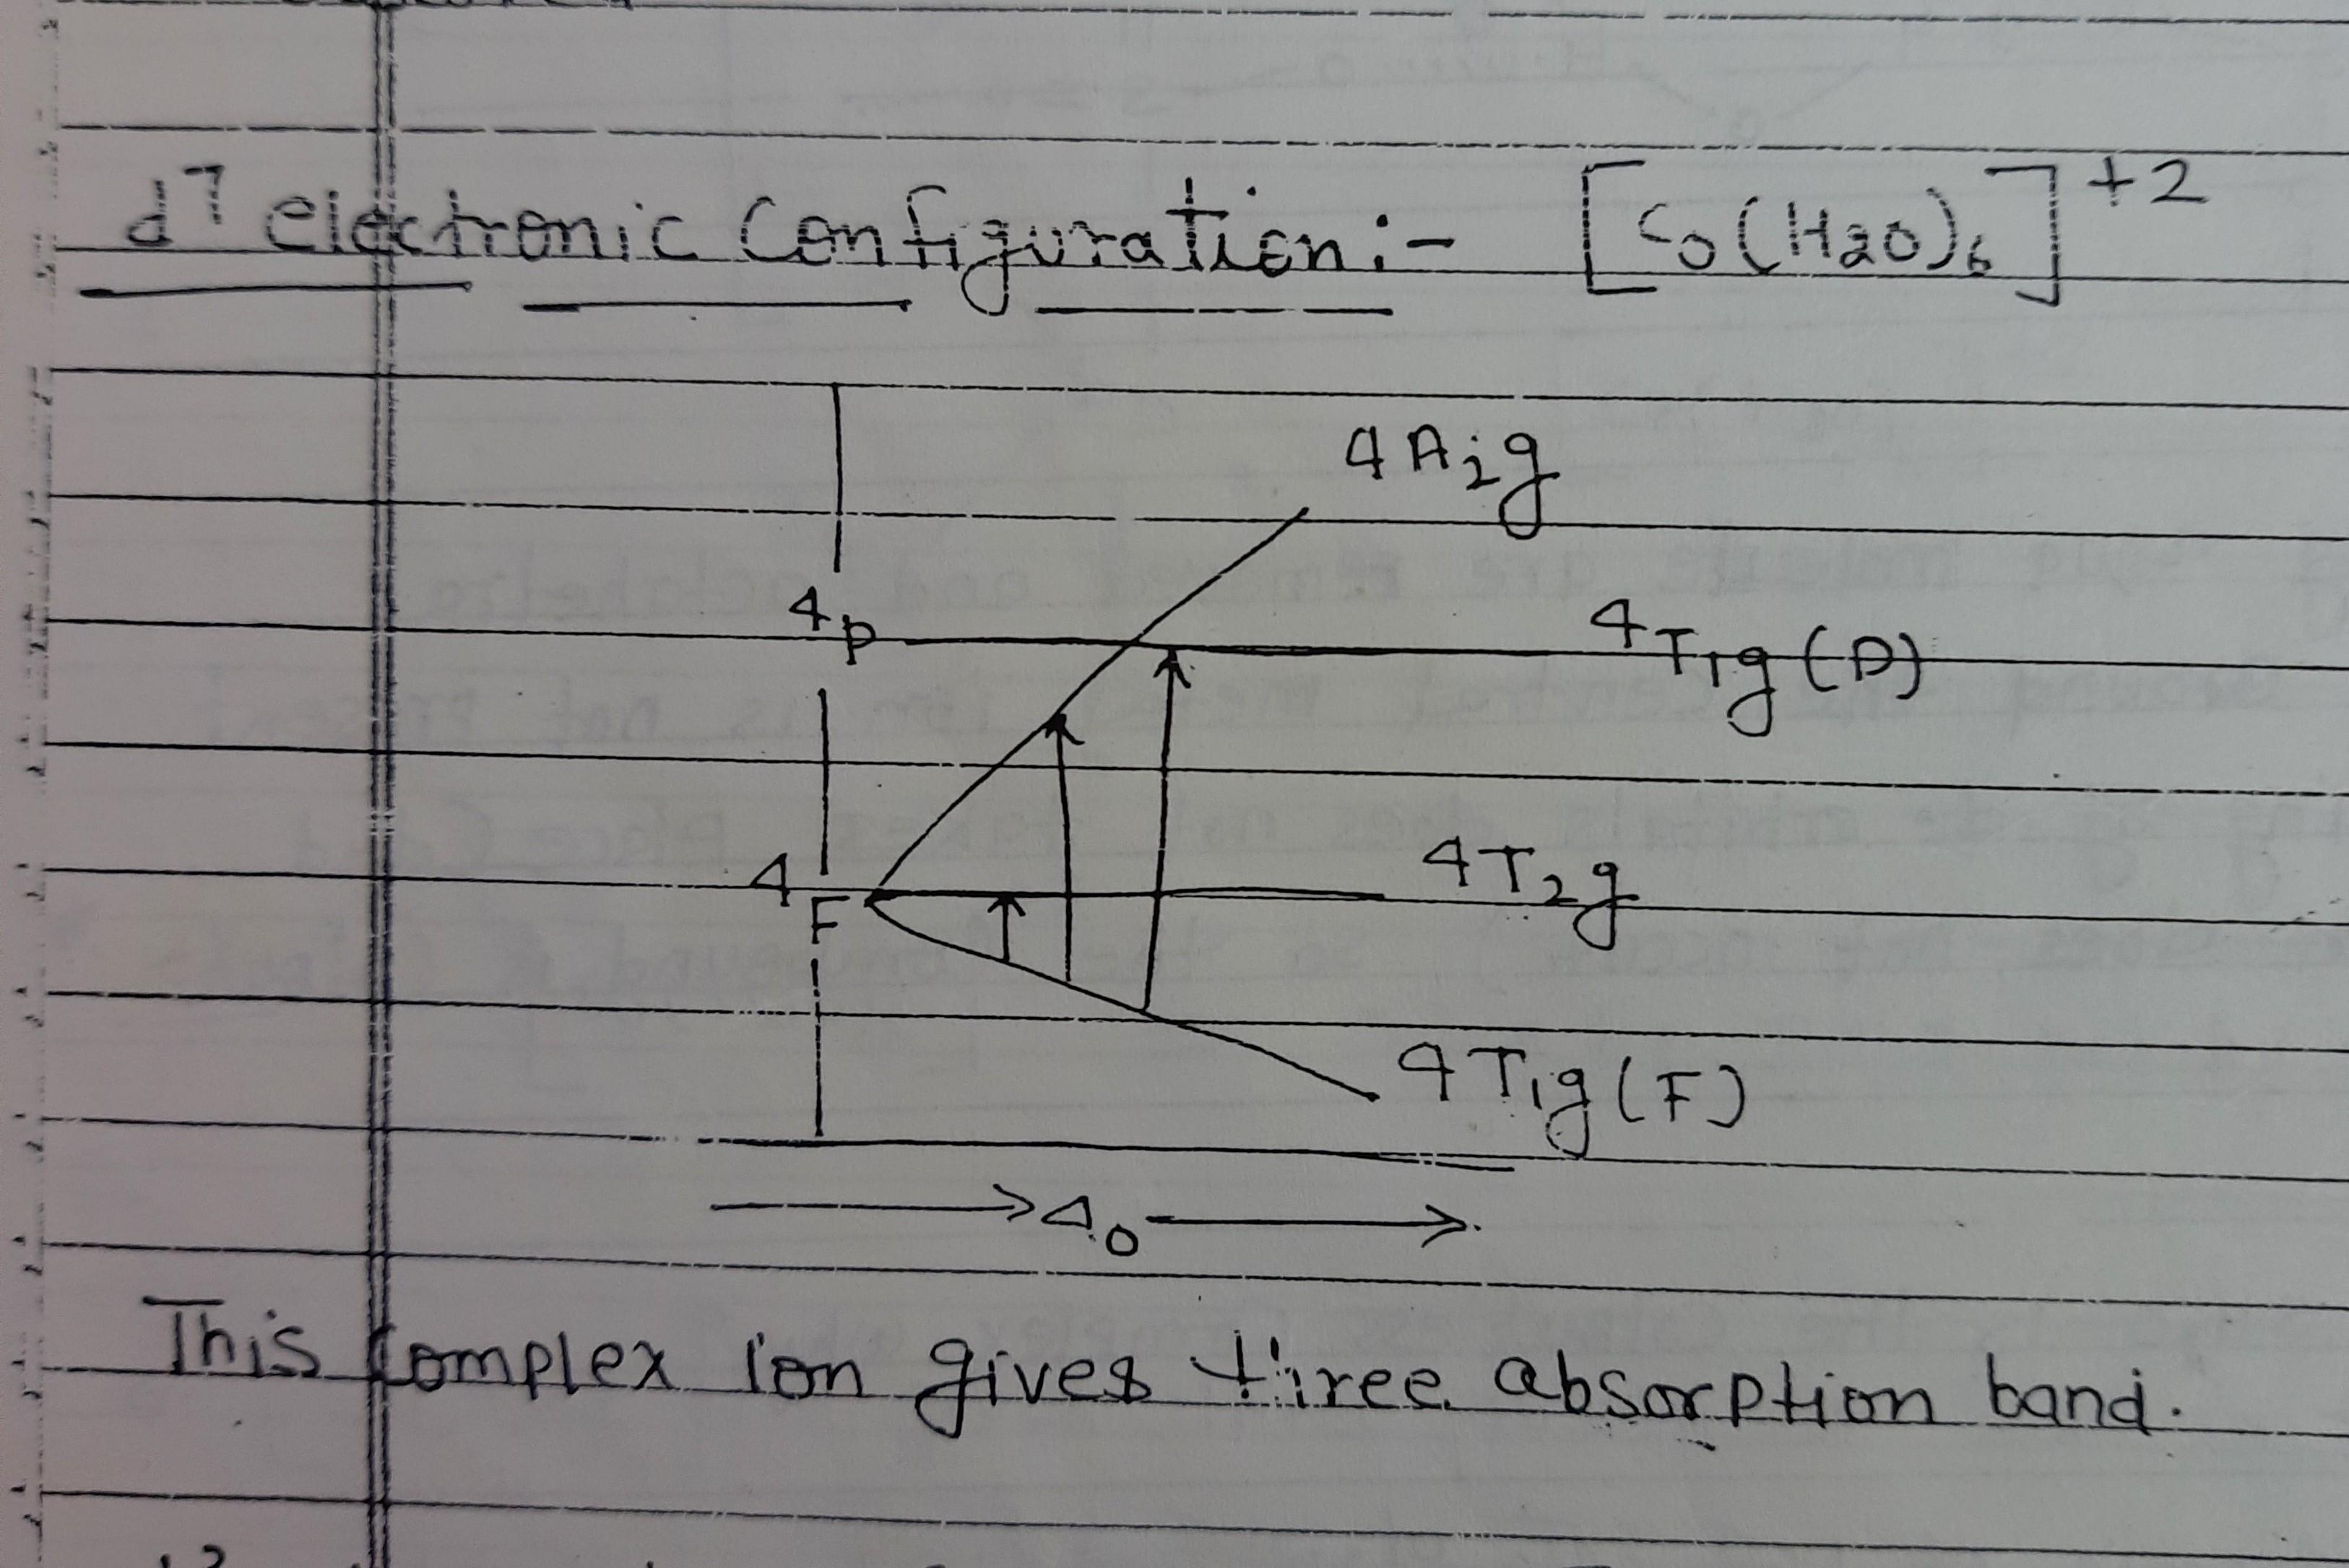 d⁷ electronic configuration:- [Co(H2O)6]⁺²
4A2g
⁴P ⁴T1g(P)
⁴F 4T2g
4T1g(F)
→ Δo →
This complex ion gives three absorption band.